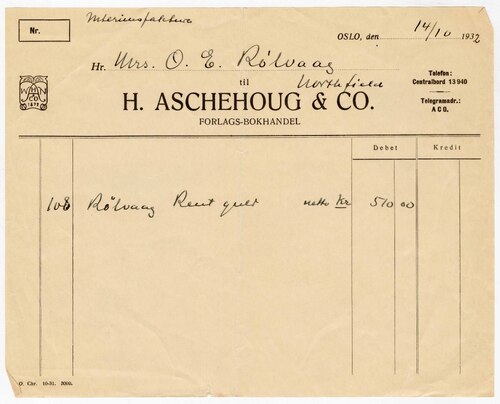 Nr.
Interimsfaktura
OSLO, den 14/10 1932
Hr. Mrs. O. E. Rølvaag
til Northfield
Telefon:
Centralbord 13940
Telegramadr.:
ACO.
H. ASCHEHOUG & CO.
FORLAGS-BOKHANDEL
Debet Kredit
108 Rølvaag Rent guld netto Kr 510 00
O. Chr. 10-31. 2000.